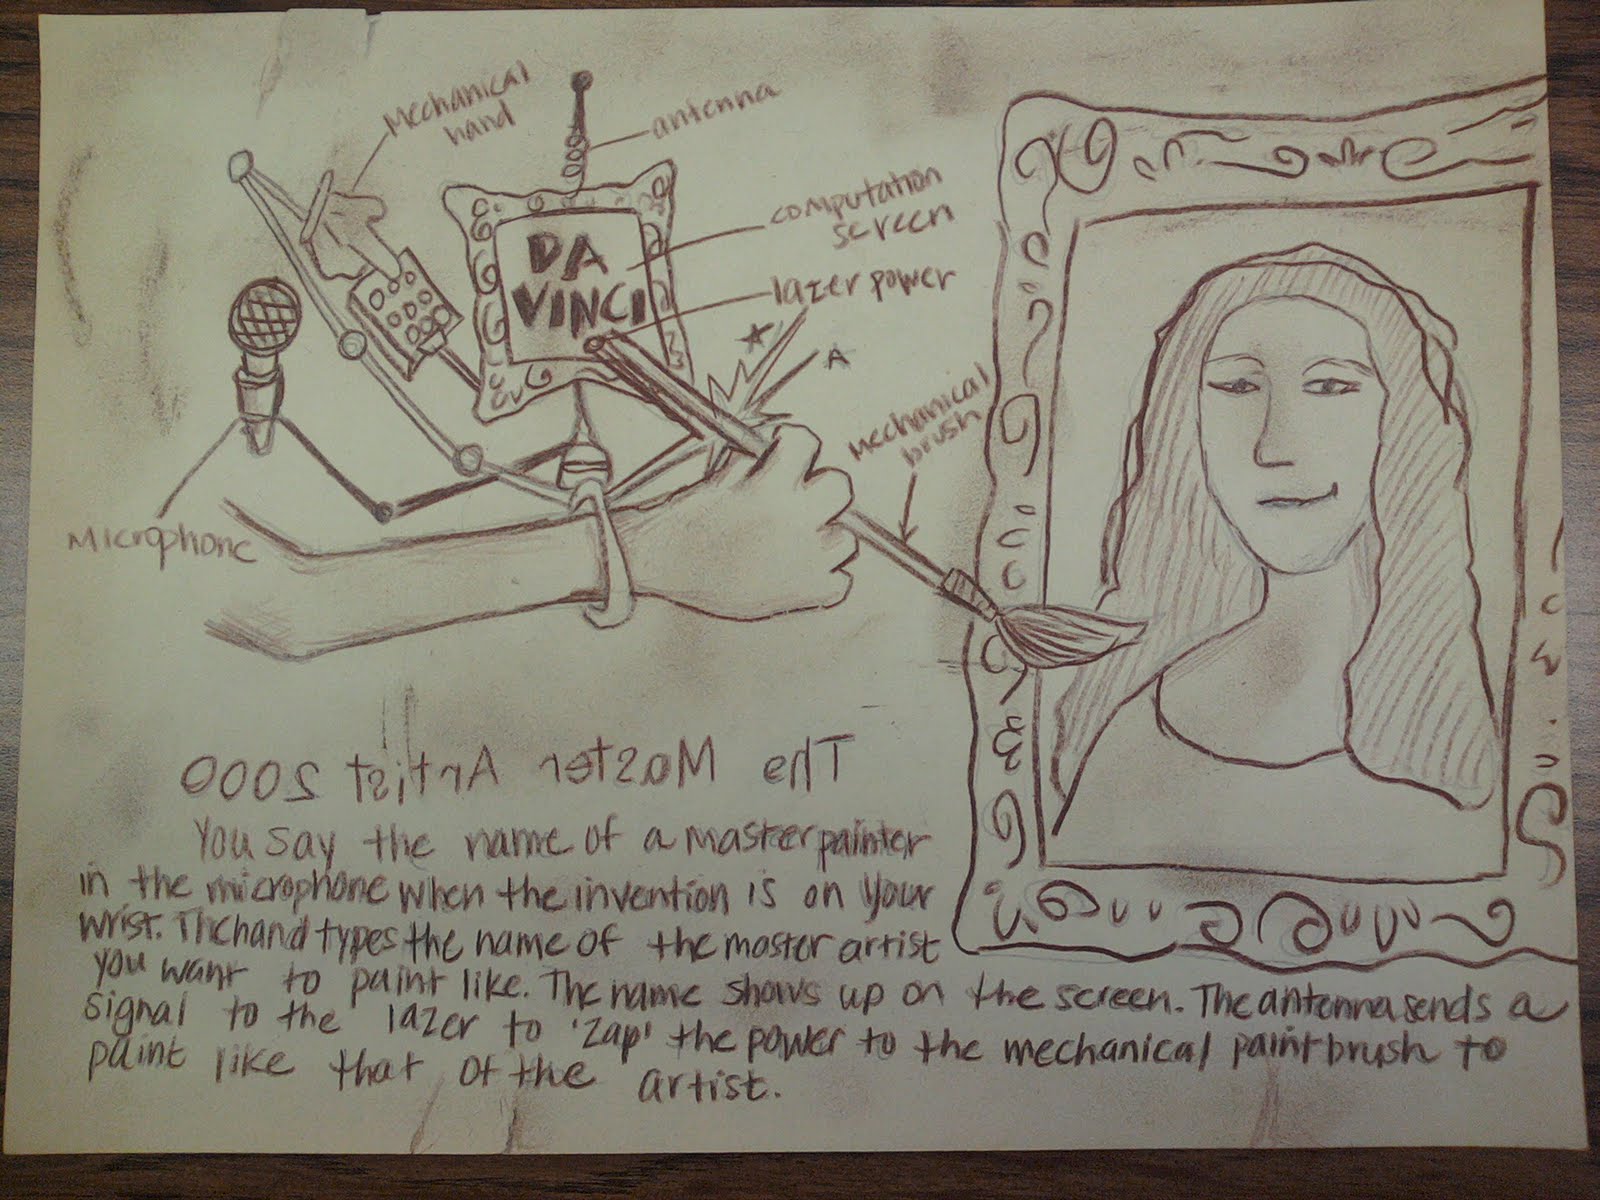 Mechanical
hand
antenna
computation
screen
DA
VINCI
lazer power
Mechanical
brush
Microphone
The Master Artist 2000
You say the name of a master painter
in the microphone when the invention is on your
wrist. The hand types the name of the master artist
you want to paint like. The name shows up on the screen. The antenna sends a
signal to the lazer to 'zap' the power to the mechanical paintbrush to
paint like that of the artist.